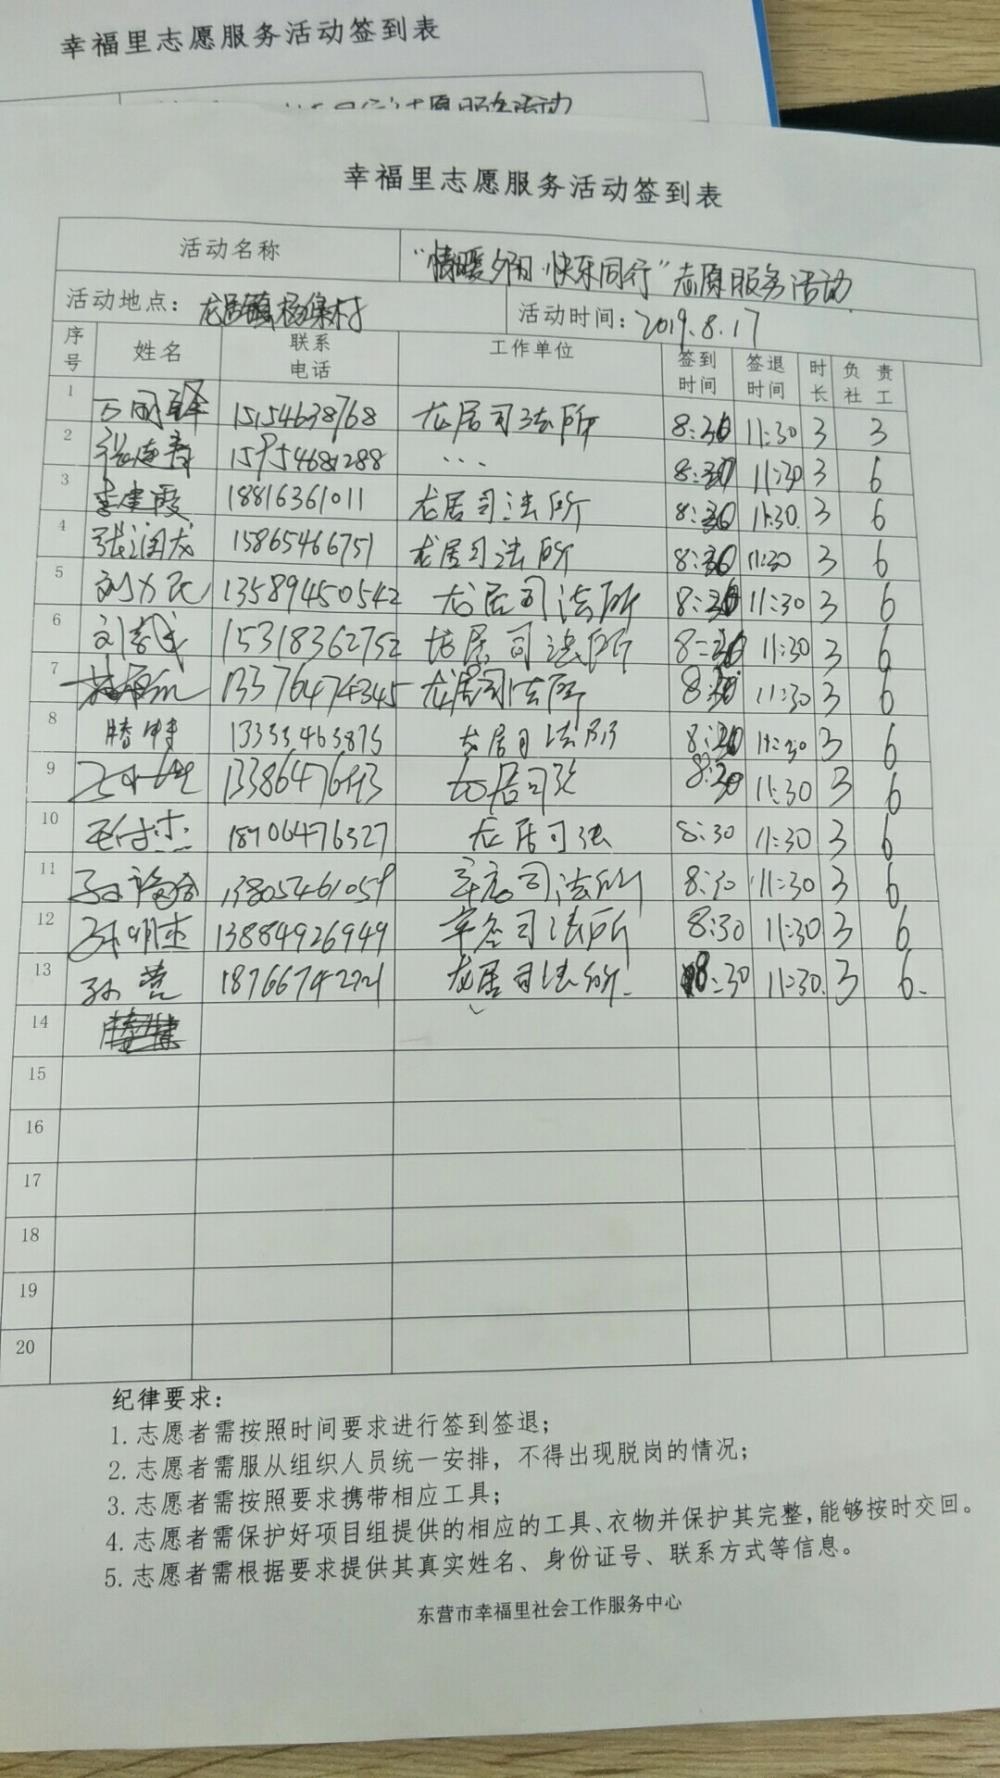 幸福里志愿服务活动签到表
志愿服务活动
幸福里志愿服务活动签到表
活动名称 "情暖夕阳 快乐同行"志愿服务活动
活动地点：龙居镇杨集村 活动时间：2019.8.17
序号 姓名 联系电话 工作单位 签到时间 签退时间 时长 负责社工
1 15154638768 龙居司法所 8:30 11:30 3 3
2 15954681288 ... 8:30 11:30 3 6
3 李建霞 18816361011 龙居司法所 8:30 11:30 3 6
4 张润龙 15865466751 龙居司法所 8:30 11:30 3 6
5 13589450542 龙居司法所 8:30 11:30 3 6
6 15318362752 龙居司法所 8:30 11:30 3 6
7 13376474345 龙居司法所 8:30 11:30 3 6
8 13355463875 龙居司法所 8:30 11:30 3 6
9 龙居司法 8:30 11:30 3 6
10 18906476527 龙居司法 8:30 11:30 3 6
11 13805461059 司法所 8:30 11:30 3 6
12 孙明杰 13884926949 司法所 8:30 11:30 3 6
13 孙营 18766742721 龙居司法所. 8:30 11:30. 3 6.
14
15
16
17
18
19
20
纪律要求：
1.志愿者需按照时间要求进行签到签退；
2.志愿者需服从组织人员统一安排，不得出现脱岗的情况；
3.志愿者需按照要求携带相应工具；
4.志愿者需保护好项目组提供的相应的工具、衣物并保护其完整，能够按时交回。
5.志愿者需根据要求提供其真实姓名、身份证号、联系方式等信息。
东营市幸福里社会工作服务中心